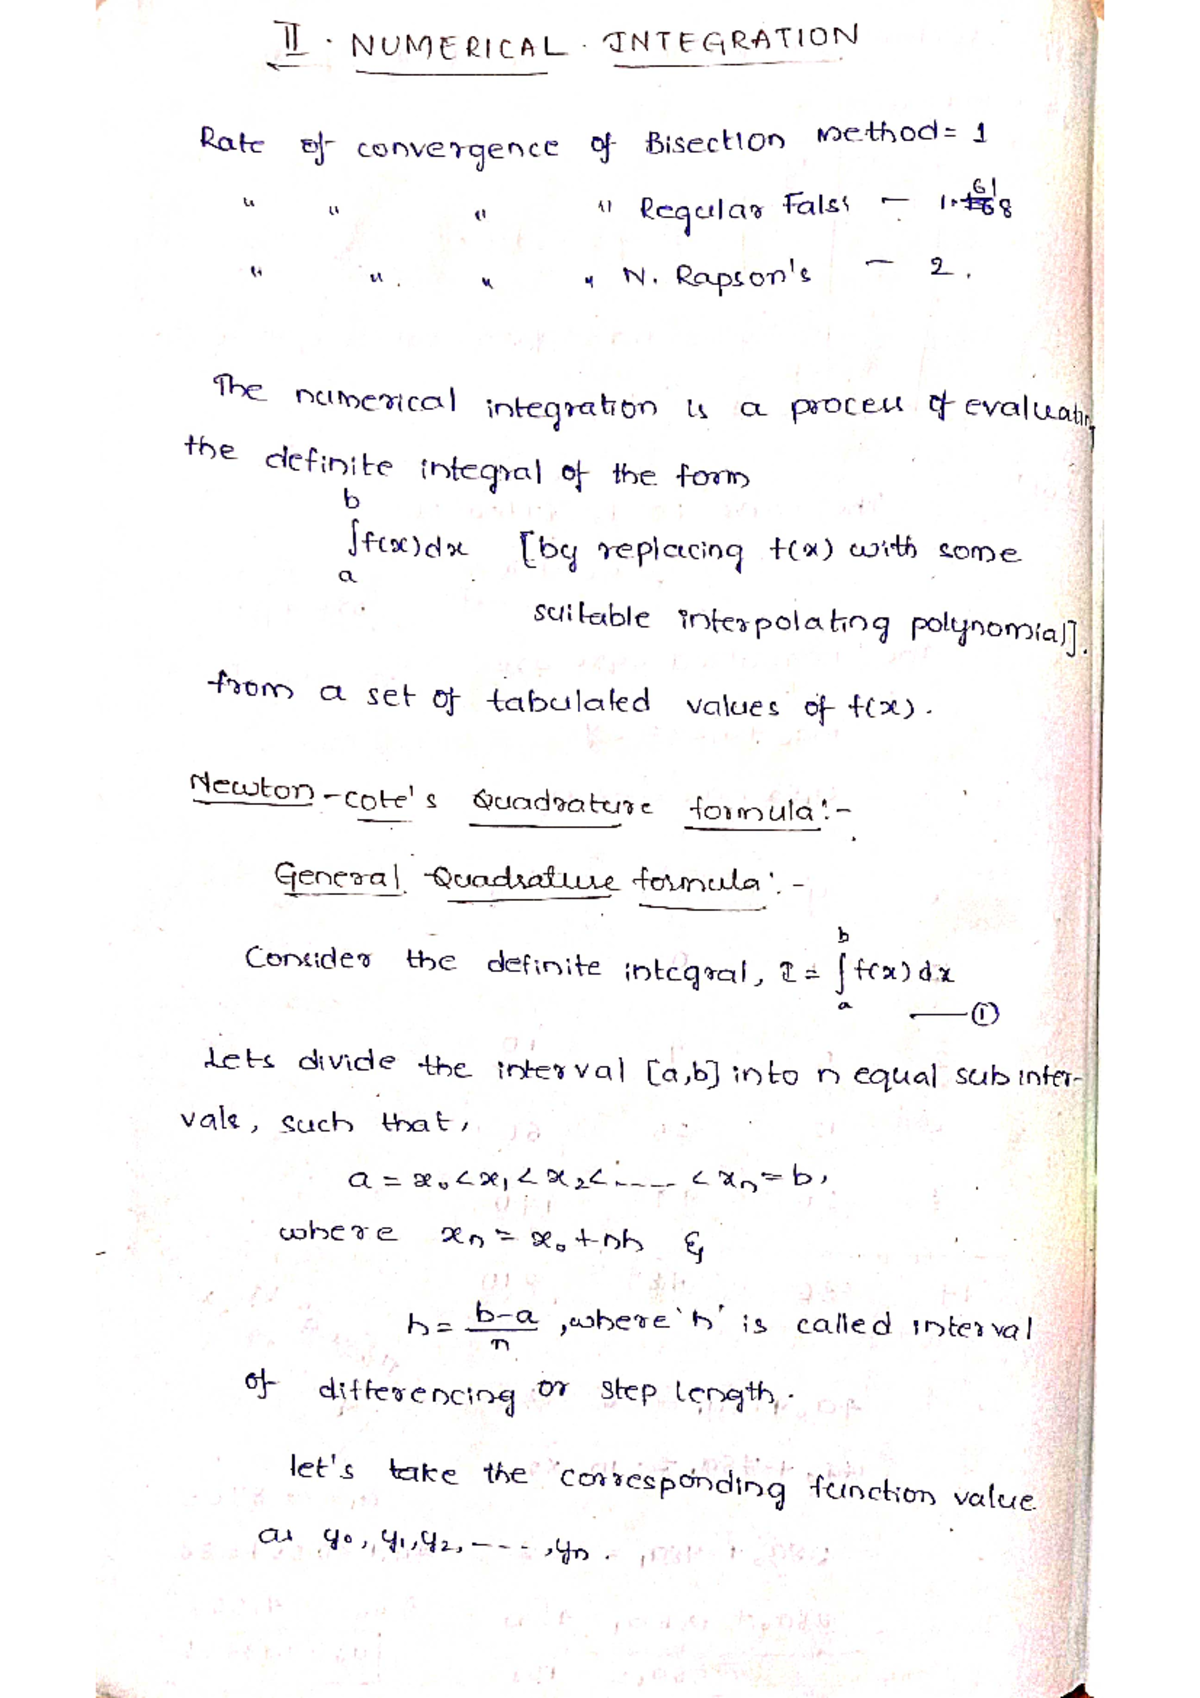 II. NUMERICAL. INTEGRATION
Rate of convergence of Bisection method = 1
" " " " Regular Falsi - 1.618
" " " " N. Rapson's - 2.
The numerical integration is a process of evaluating
the definite integral of the form
b
∫f(x)dx [by replacing f(x) with some
a
suitable interpolating polynomial].
from a set of tabulated values of f(x).
Newton-cote's Quadrature formula:-
General Quadrature formula:-
b
Consider the definite integral, I = ∫ f(x) dx
a —— ①
Lets divide the interval [a,b] into n equal subinter-
vals, such that,
a = x₀ < x₁ < x₂ < ..... < xₙ = b,
where xₙ = x₀ + nh &
h = b-a/n, where 'h' is called interval
of differencing or step length.
let's take the corresponding function value
as y₀, y₁, y₂, ----, yₙ.